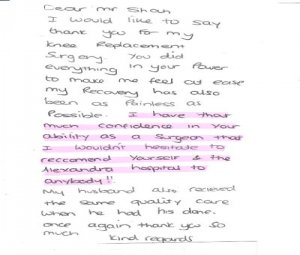 Dear Mr Shah
I would like to say
thank you for my
knee Replacement
Surgery. You did
everything in your Power
to make me feel at ease
my Recovery has also
been as Painless as
Possible. I have that
much confidence in your
ability as a Surgeon that
I wouldn't hesitate to
reccomend Yourself & the
Alexandra hospital to
anybody!!
My husband also recieved
the same quality care
when he had his done.
once again thank you so
much kind regards